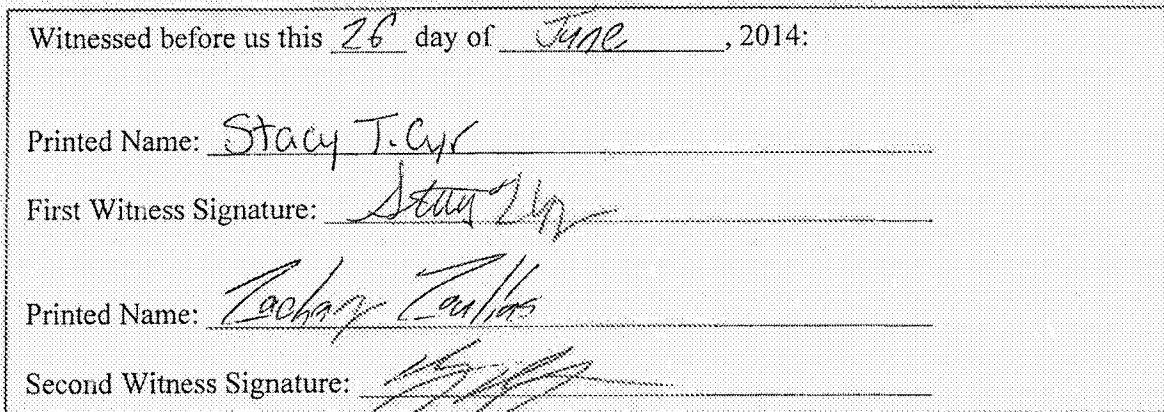 Witnessed before us this 26 day of June, 2014:
Printed Name: Stacy T. Cyr
First Witness Signature: Stacy T Cyr
Printed Name: Zachary
Second Witness Signature: